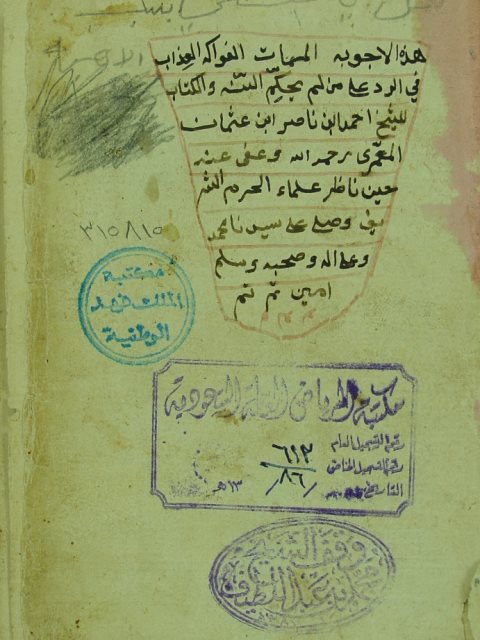 هذه الاجوبه المسمات الفواكه العذاب
في الرد على من لم يحكم السنه والكتاب
للشيخ احمد ابن ناصر ابن عثمان
المعمري رحمه الله وعفى عنه
حين ناظر علماء الحرم الشر
يف وصلى على سيدنا محمد
وعلى اله وصحبه وسلم
امين تم تم
تم تم تم
٣١٥٨١٥
مكتبة
الملك فهد
الوطنية
مكتبة الرياض العامة السعودية
رقم التسجيل العام ٦١٣
رقم التسجيل الخاص ٨٦
التاريخ ١٣ هـ
وقف الشيخ
محمد بن عبد اللطيف